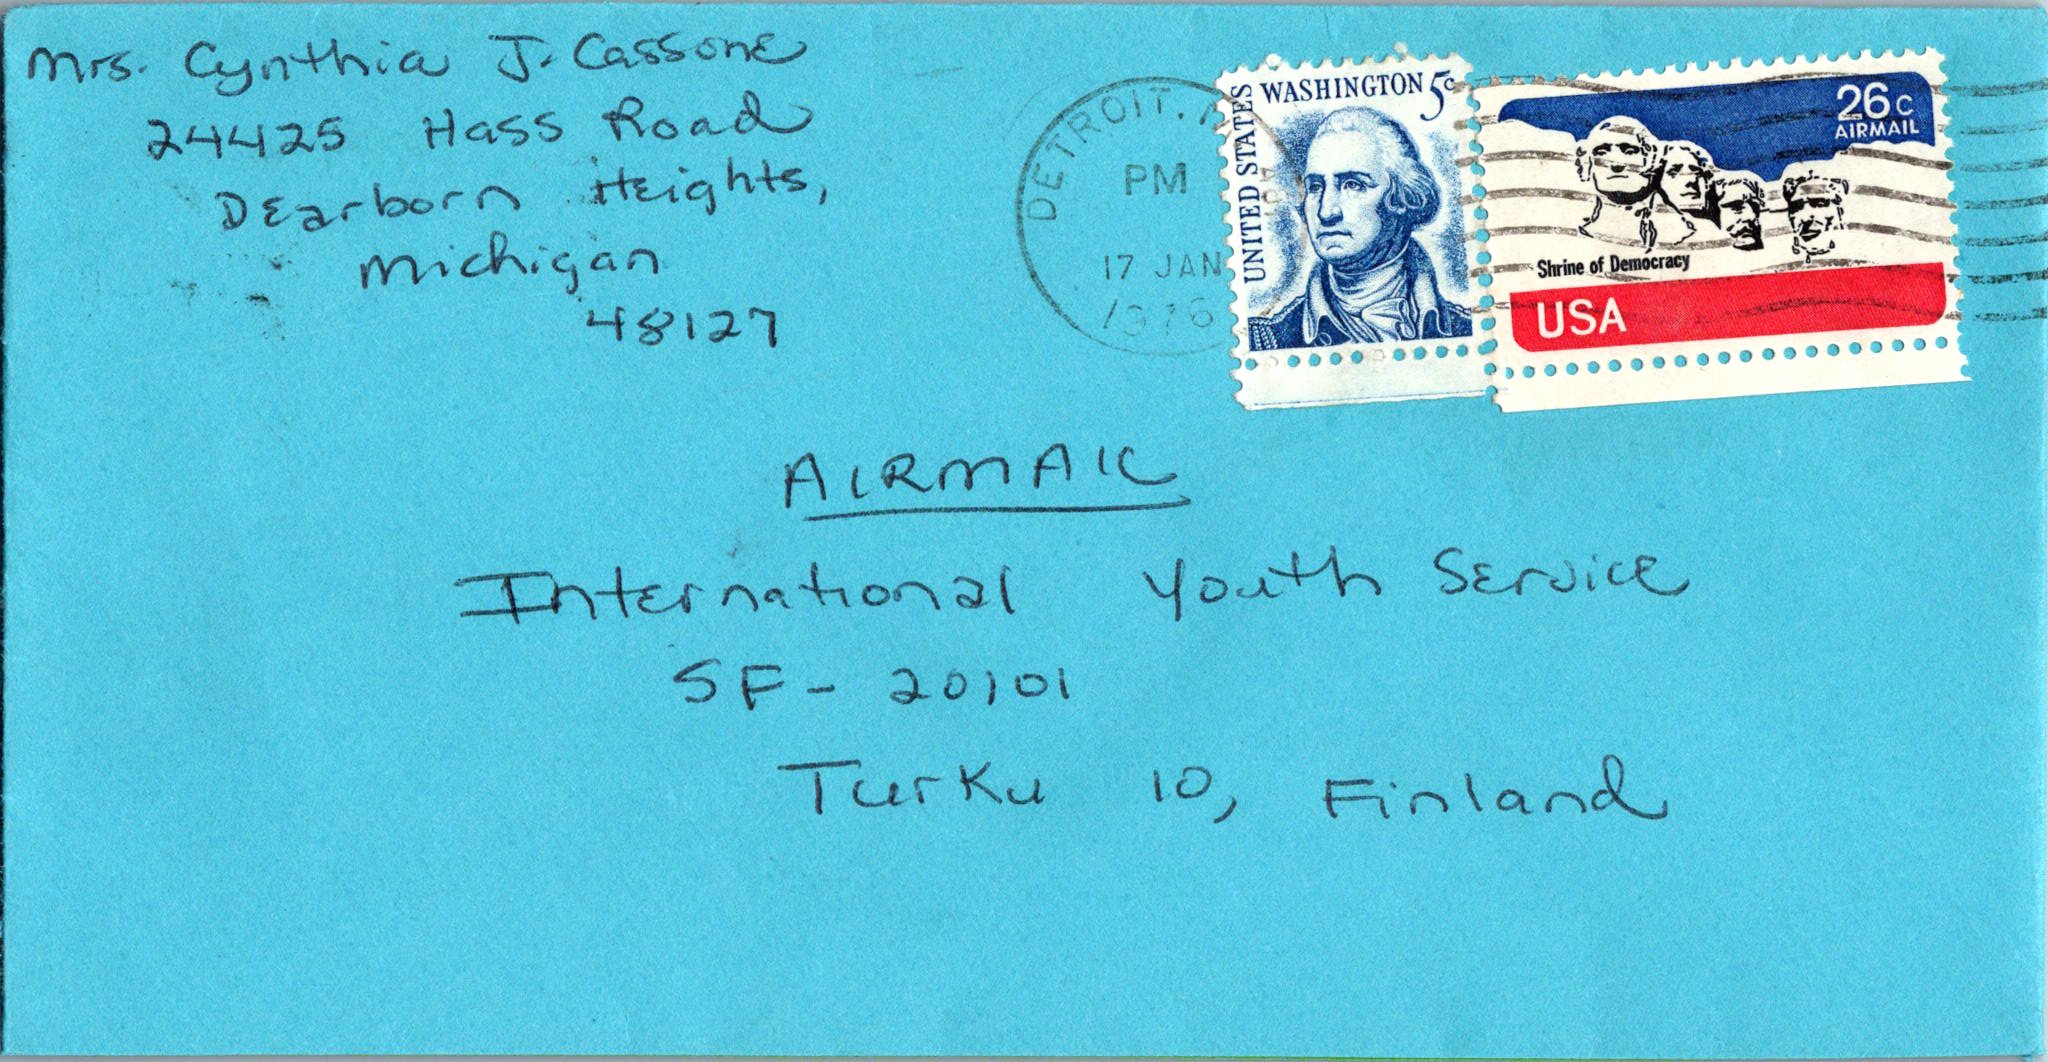 Mrs. Cynthia J. Cassone
24425 Hass Road
Dearborn Heights,
Michigan
48127
DETROIT,
PM
17 JAN
1976
UNITED STATES
WASHINGTON 5c
26c
AIRMAIL
Shrine of Democracy
USA
AIRMAIL
International Youth Service
SF - 20101
Turku 10, Finland